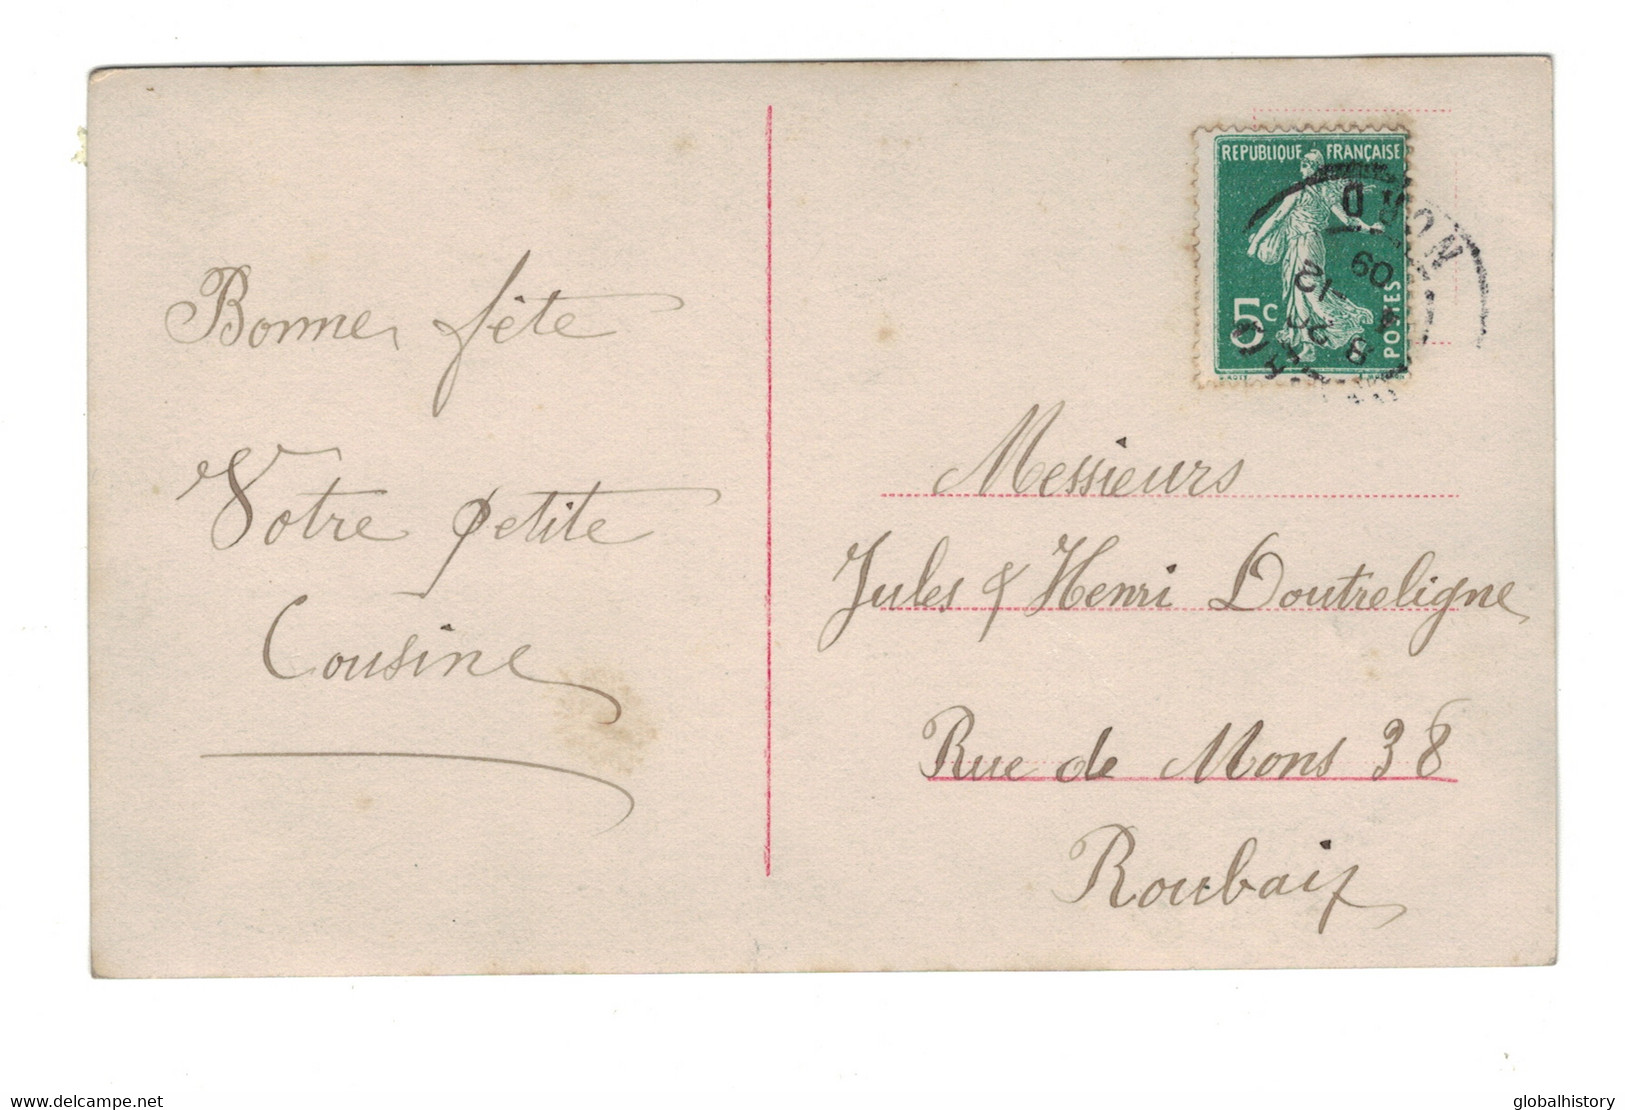 Bonne fête
Votre petite
Cousine
REPUBLIQUE FRANÇAISE
5c
POSTES
NORD
09
-12
Messieurs
Jules & Henri Doutreligne
Rue de Mons 38
Roubaix
www.delcampe.net
globalhistory